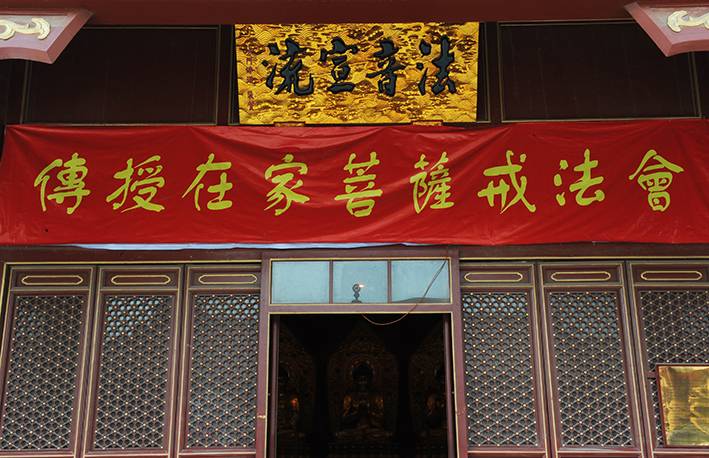 法音宣流
傳授在家菩薩戒法會